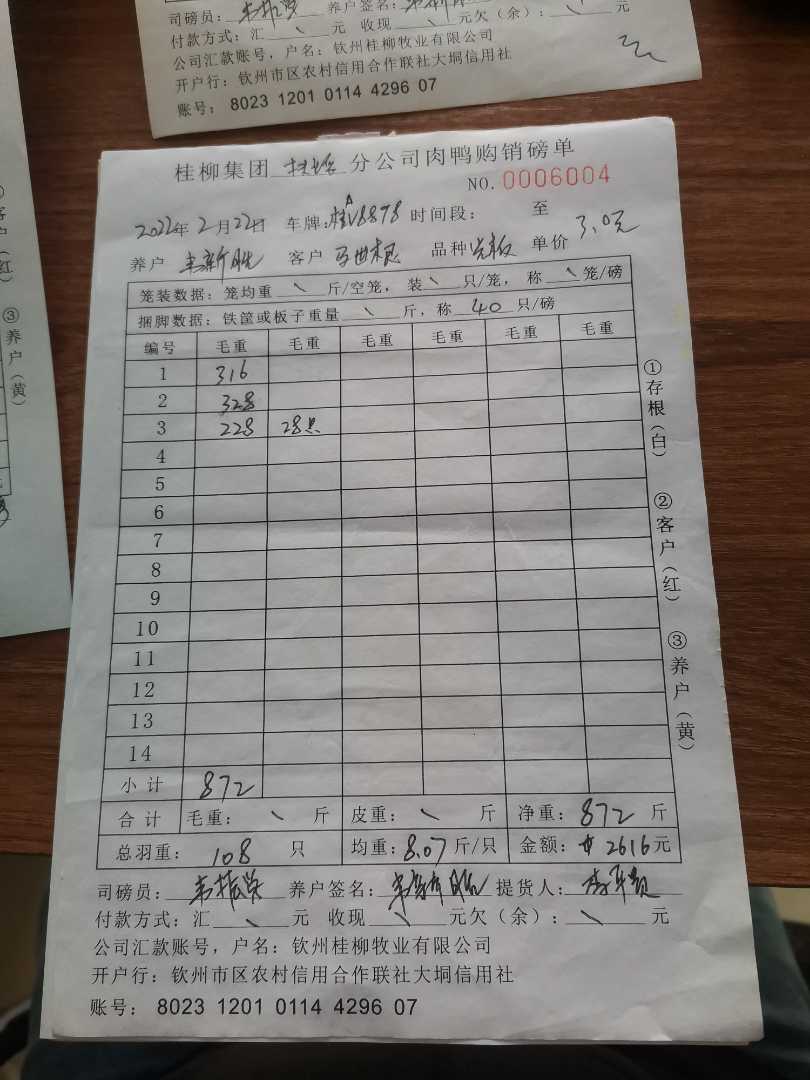 司磅员： 养户签名：
付款方式：汇 元 收现 元欠（余）： 元
公司汇款账号，户名：钦州桂柳牧业有限公司
开户行：钦州市区农村信用合作联社大垌信用社
账号： 8023 1201 0114 4296 07
桂柳集团 分公司肉鸭购销磅单
NO. 0006004
2022年2月22日 车牌：桂AV8878 时间段： 至
养户 韦新胜 客户 马世根 品种 单价 3.0元
笼装数据：笼均重 斤/空笼，装 只/笼，称 笼/磅
捆脚数据：铁筐或板子重量 斤，称 40 只/磅
编号 毛重 毛重 毛重 毛重 毛重 毛重
1 316
2 328
3 228 28只
4
5
6
7
8
9
10
11
12
13
14
小计 872
合计 毛重： 斤 皮重： 斤 净重：872 斤
总羽重：108 只 均重：8.07 斤/只 金额：¥2616元
司磅员：韦振荣 养户签名：韦新胜 提货人：
付款方式：汇 元 收现 元欠（余）： 元
公司汇款账号，户名：钦州桂柳牧业有限公司
开户行：钦州市区农村信用合作联社大垌信用社
账号： 8023 1201 0114 4296 07
①存根（白）
②客户（红）
③养户（黄）
客户（红）
③养户（黄）